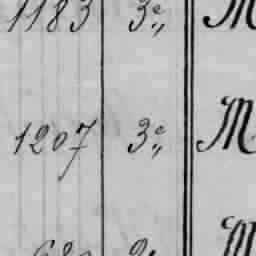 1183 3e„ M
1207 3e„ M